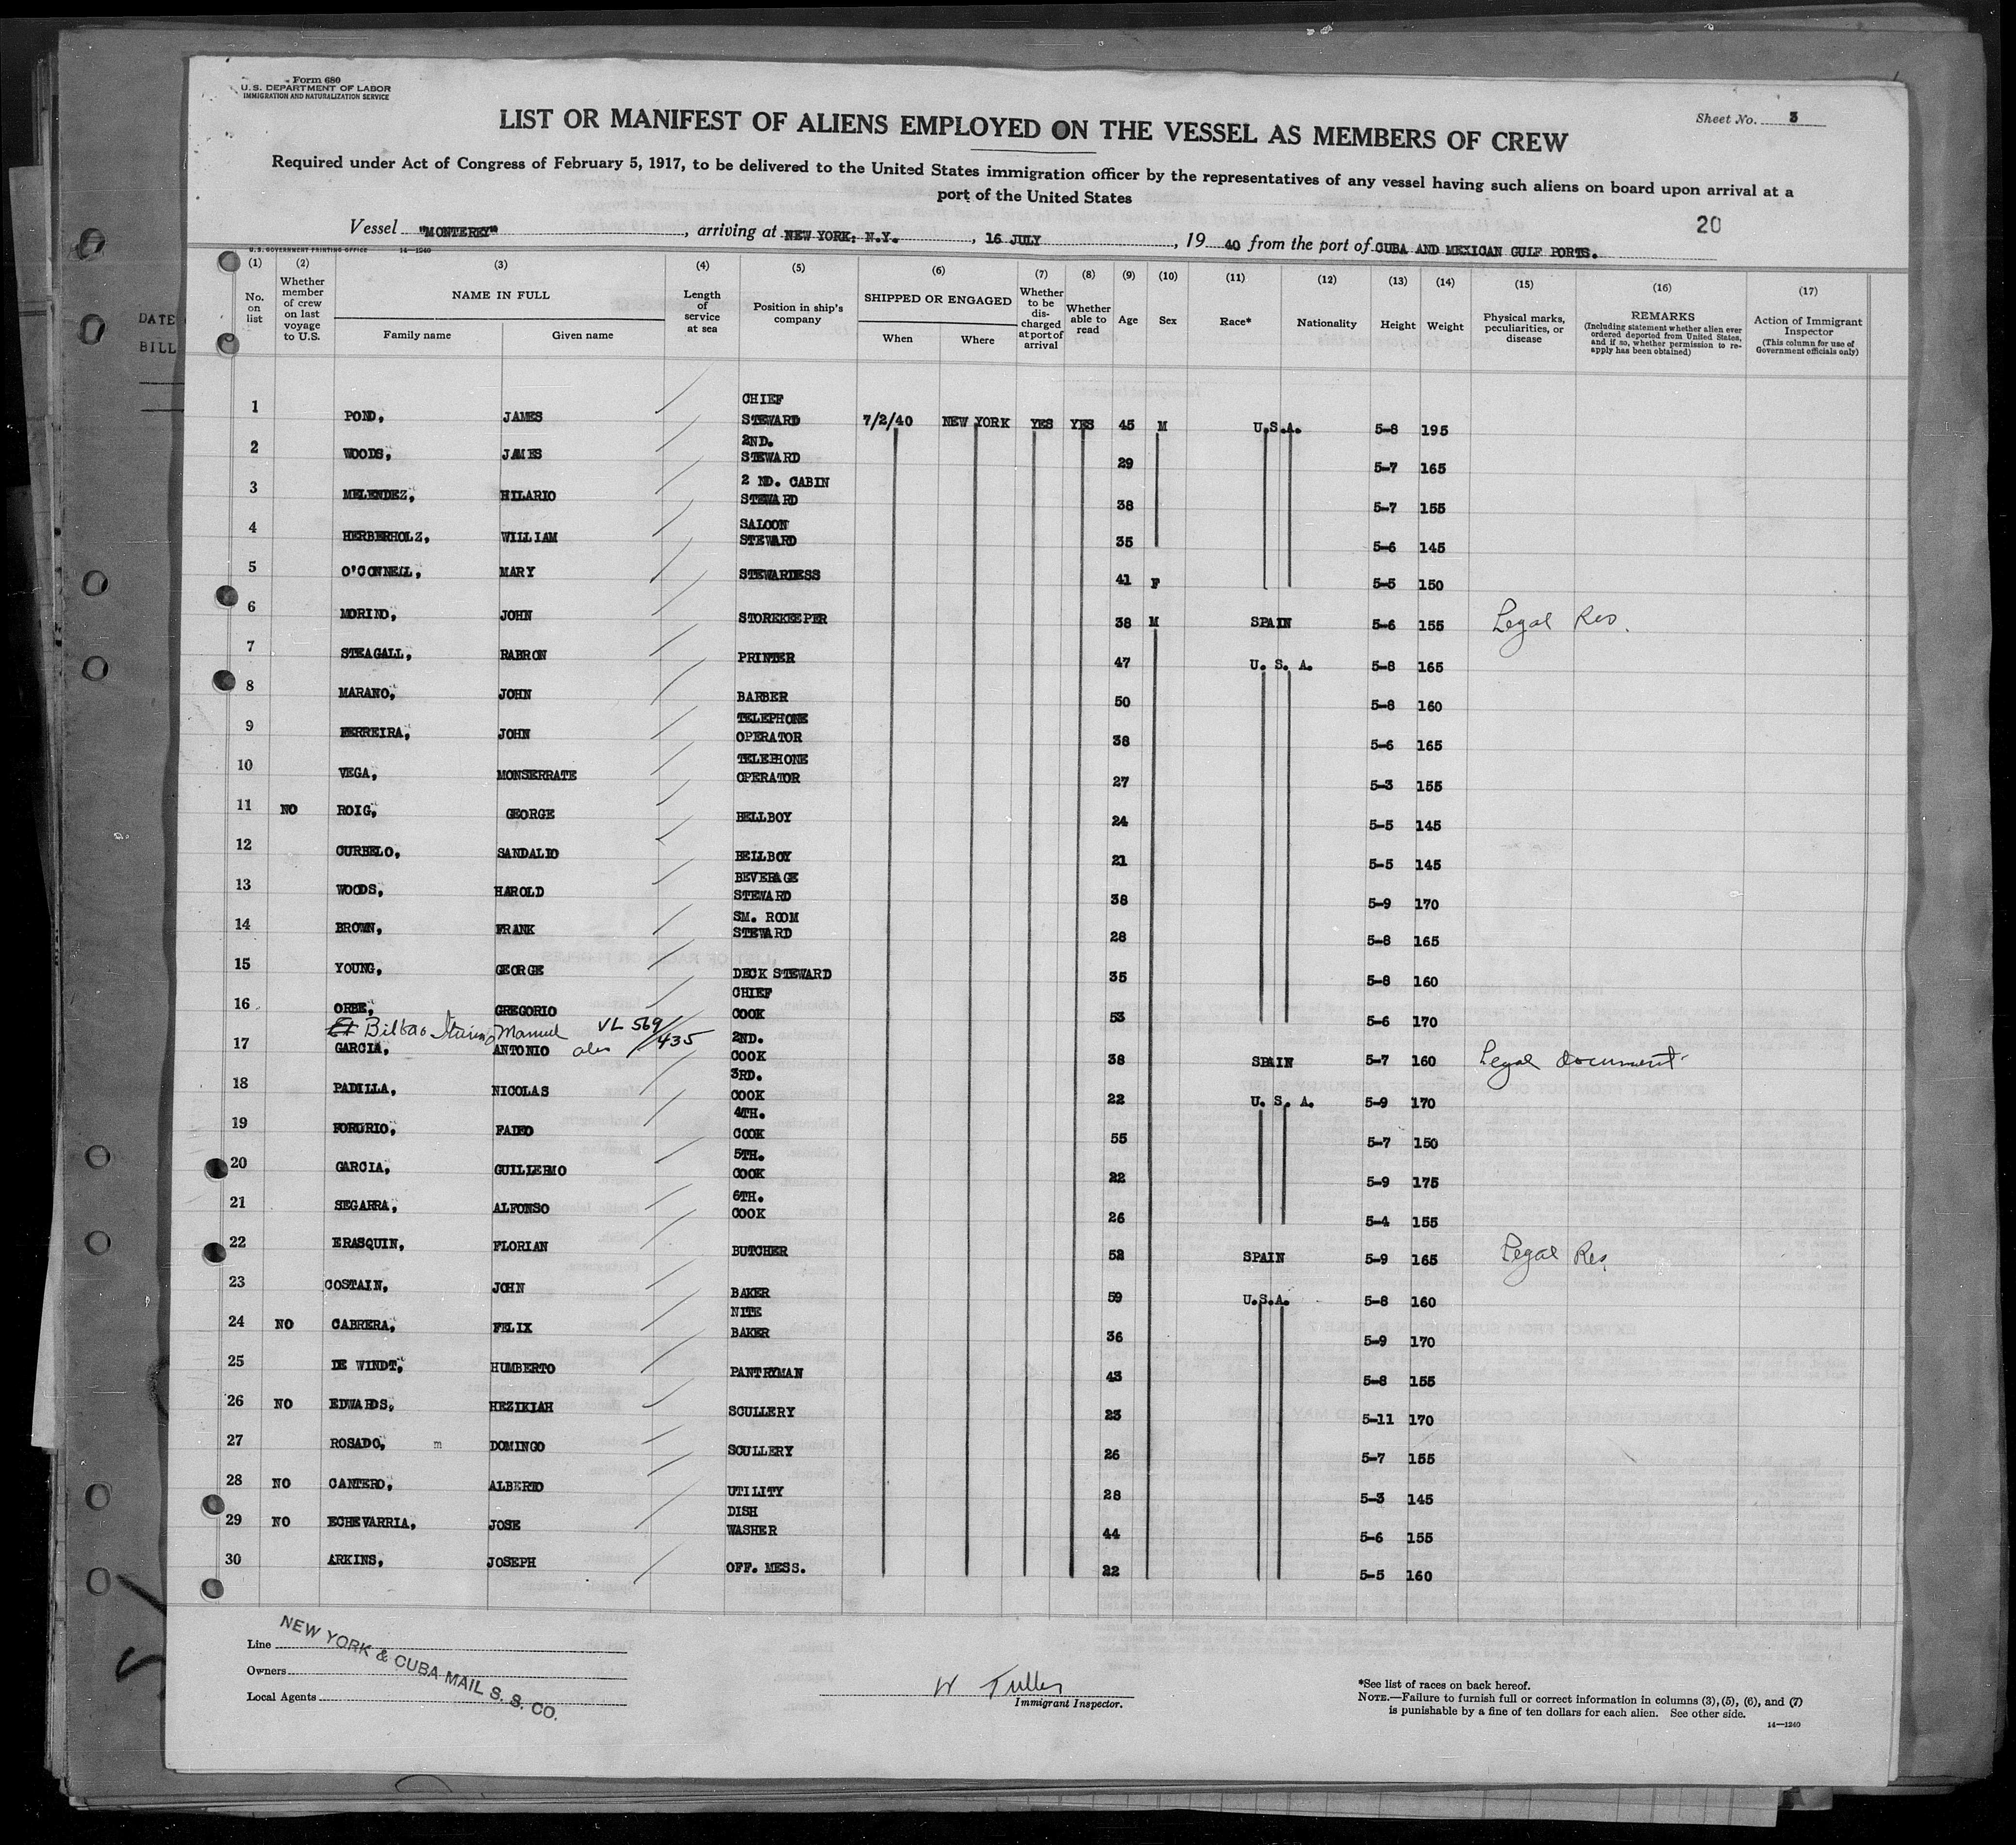 Form 680
U.S. DEPARTMENT OF LABOR
IMMIGRATION AND NATURALIZATION SERVICE
Sheet No. 3
LIST OR MANIFEST OF ALIENS EMPLOYED ON THE VESSEL AS MEMBERS OF CREW
Required under Act of Congress of February 5, 1917, to be delivered to the United States immigration officer by the representatives of any vessel having such aliens on board upon arrival at a
port of the United States
20
Vessel "MONTEREY", arriving at NEW YORK, N.Y., 16 JULY, 19 40 from the port of CUBA AND MEXICAN GULF PORTS.
U.S. GOVERNMENT PRINTING OFFICE 14—1240
DATE
BILL
(1) (2) (3) (4) (5) (6) (7) (8) (9) (10) (11) (12) (13) (14) (15) (16) (17)
No. on list
Whether member of crew on last voyage to U.S.
NAME IN FULL
Family name Given name
Length of service at sea
Position in ship's company
SHIPPED OR ENGAGED
When Where
Whether to be discharged at port of arrival
Whether able to read
Age Sex Race* Nationality Height Weight
Physical marks, peculiarities, or disease
REMARKS
(Including statement whether alien ever ordered deported from United States, and if so, whether permission to reapply has been obtained)
Action of Immigrant Inspector
(This column for use of Government officials only)
1 POND, JAMES CHIEF STEWARD 7/2/40 NEW YORK YES YES 45 M U.S.A. 5-8 195
2 WOODS, JAMES 2ND. STEWARD 29 5-7 165
3 MELENDEZ, HILARIO 2 ND. CABIN STEWARD 38 5-7 155
4 HERBERHOLZ, WILLIAM SALOON STEWARD 35 5-6 145
5 O'CONNELL, MARY STEWARDESS 41 F 5-5 150
6 MORINO, JOHN STOREKEEPER 38 M SPAIN 5-6 155 Legal Res.
7 STEAGALL, RABRON PRINTER 47 U. S. A. 5-8 165
8 MARANO, JOHN BARBER 50 5-8 160
9 FERREIRA, JOHN TELEPHONE OPERATOR 38 5-6 165
10 VEGA, MONSERRATE TELEPHONE OPERATOR 27 5-3 155
11 NO ROIG, GEORGE BELLBOY 24 5-5 145
12 CURBELO, SANDALIO BELLBOY 21 5-5 145
13 WOODS, HAROLD BEVERAGE STEWARD 38 5-9 170
14 BROWN, FRANK SM. ROOM STEWARD 28 5-8 165
15 YOUNG, GEORGE DECK STEWARD 35 5-8 160
16 ORBE, GREGORIO CHIEF COOK 53 5-6 170
Bilbao Manuel VL 569/435
17 GARCIA, ANTONIO 2ND. COOK 38 SPAIN 5-7 160 Legal document
18 PADILLA, NICOLAS 3RD. COOK 22 U. S. A. 5-9 170
19 FORURIO, FADEO 4TH. COOK 55 5-7 150
20 GARCIA, GUILLERMO 5TH. COOK 22 5-9 175
21 SEGARRA, ALFONSO 6TH. COOK 26 5-4 155
22 ERASQUIN, FLORIAN BUTCHER 52 SPAIN 5-9 165 Legal Res.
23 COSTAIN, JOHN BAKER 59 U.S.A. 5-8 160
24 NO CABRERA, FELIX NITE BAKER 36 5-9 170
25 DE WINDT, HUMBERTO PANTRYMAN 43 5-8 155
26 NO EDWARDS, HEZIKIAH SCULLERY 23 5-11 170
27 ROSADO, m DOMINGO SCULLERY 26 5-7 155
28 NO CANTERO, ALBERTO UTILITY 28 5-3 145
29 NO ECHEVARRIA, JOSE DISH WASHER 44 5-6 155
30 ARKINS, JOSEPH OFF. MESS. 22 5-5 160
Line
Owners
Local Agents
NEW YORK & CUBA MAIL S. S. CO.
W Tuller
Immigrant Inspector.
*See list of races on back hereof.
NOTE.—Failure to furnish full or correct information in columns (3), (5), (6), and (7)
is punishable by a fine of ten dollars for each alien. See other side.
14—1240